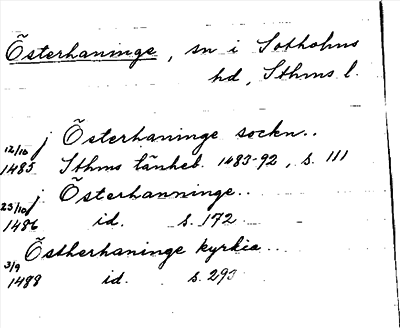 Österhaninge, sn i Sotholms
hd, Sthms l.
12/10 j Österhaninge sockn..
1485 Sthms tänkeb. 1483-92, s. 111
23/10 j Österhanninge..
1486 id. s. 172
3/9 Östherhaninge kyrkia...
1488 id. s. 293